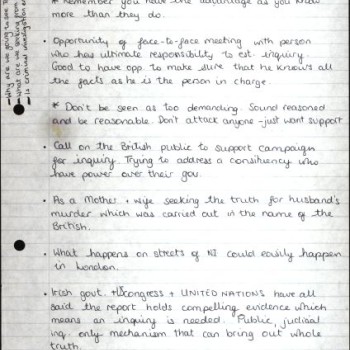 * Remember you have the advantage as you know
more than they do.
• Opportunity of face-to-face meeting with person
who has ultimate responsibility to est. inquiry.
Good to have opp. to make sure that he knows all
the facts as he is the person in charge.
* Don't be seen as too demanding. Sound reasoned
and be reasonable. Don't attack anyone - just want support
• Call on the British public to support campaign
for inquiry. Trying to address a constituency who
have power over their gov.
• As a Mother + wife seeking the truth for husband's
murder which was carried out in the name of the
British.
• What happens on streets of NI could easily happen
in London.
• Irish govt. + US congress + UNITED NATIONS have all
said the report holds compelling evidence which
means an inquiry is needed. Public, judicial
inq. only mechanism that can bring out whole
truth.
- Why are we going
- what are we
- Is criminal investigation